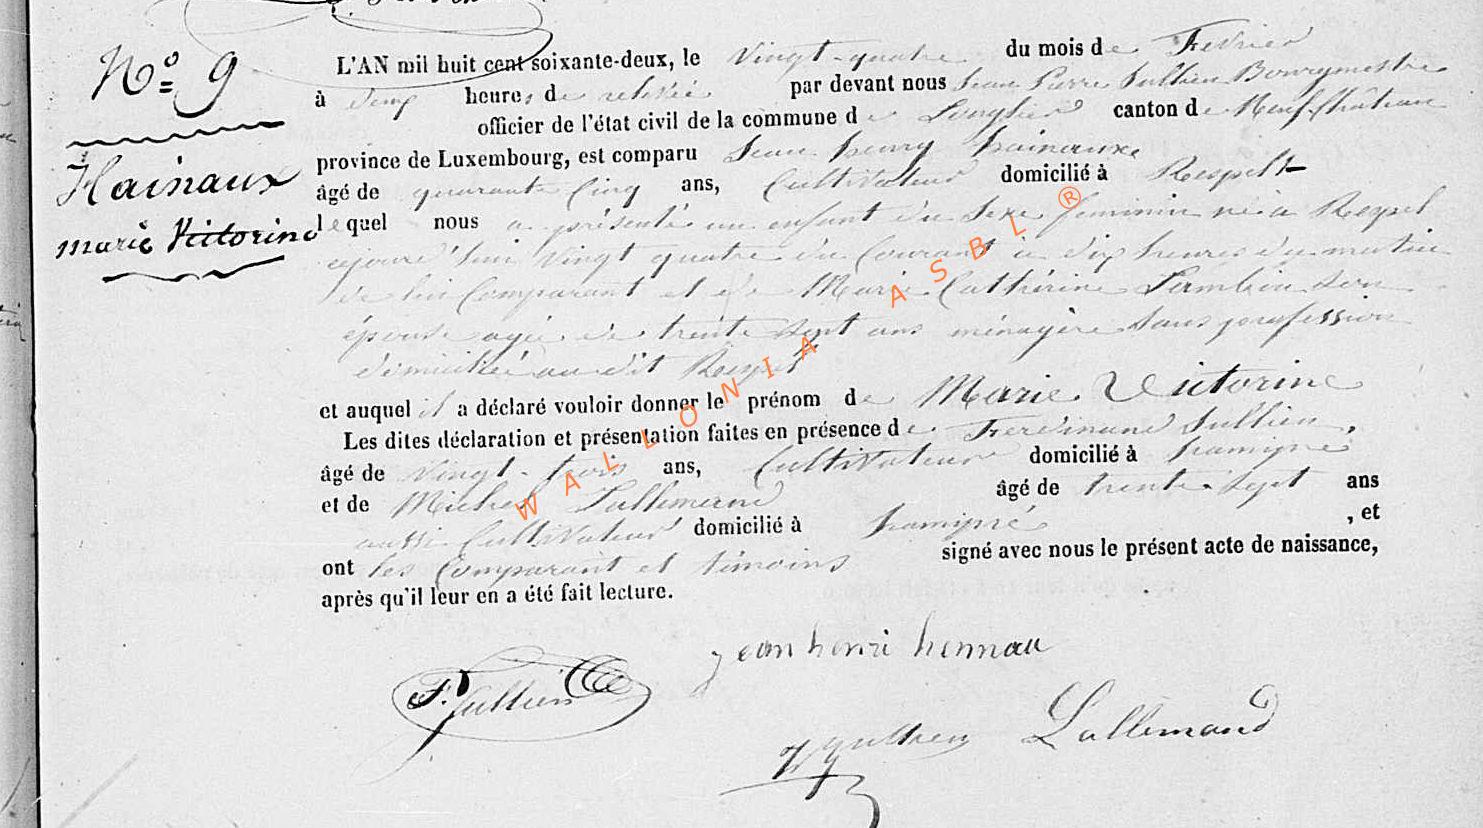 N° 9
Hainaux
marie Victorine
L'AN mil huit cent soixante-deux, le vingt-quatre du mois de Fevrier
à deux heures de relevée par devant nous Jean Pierre Jullien Bourgmestre
officier de l'état civil de la commune de Longlier canton de Neufchâteau
province de Luxembourg, est comparu Jean henry hainauxe
âgé de quarante Cinq ans, Cultivateur domicilié à Respelt
lequel nous a présenté un enfant du Sexe feminin né à Respel
ajourd'hui vingt quatre du Courant à dix heures du matin
de lui Comparant et de Marie Cathérine Lambin son
épouse agée de trente sept ans ménagère Sans profession
domiciliée au dit Respel
et auquel il a déclaré vouloir donner le prénom de Marie Victorine
Les dites déclaration et présentation faites en présence de Ferdinand Jullien,
âgé de vingt-trois ans, Cultivateur domicilié à hamipré
et de Michel Lallemand âgé de trente-sept ans
aussi Cultivateur domicilié à hamipré , et
ont les Comparant et témoins signé avec nous le présent acte de naissance,
après qu'il leur en a été fait lecture.
jean henri hennau
F. Jullien
Jullien Lallemand
WALLONIA ASBL ®